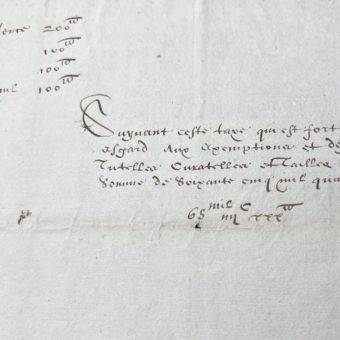 lence 200 lt
100 lt
100 lt
mil 100 lt
Suyvant ceste taxe qui est fort
esgard aux exemptions et de
Tutelles Curatelles et Tailles
Somme de Soixante cinq mil qua
65 mil iiii C xxx lt